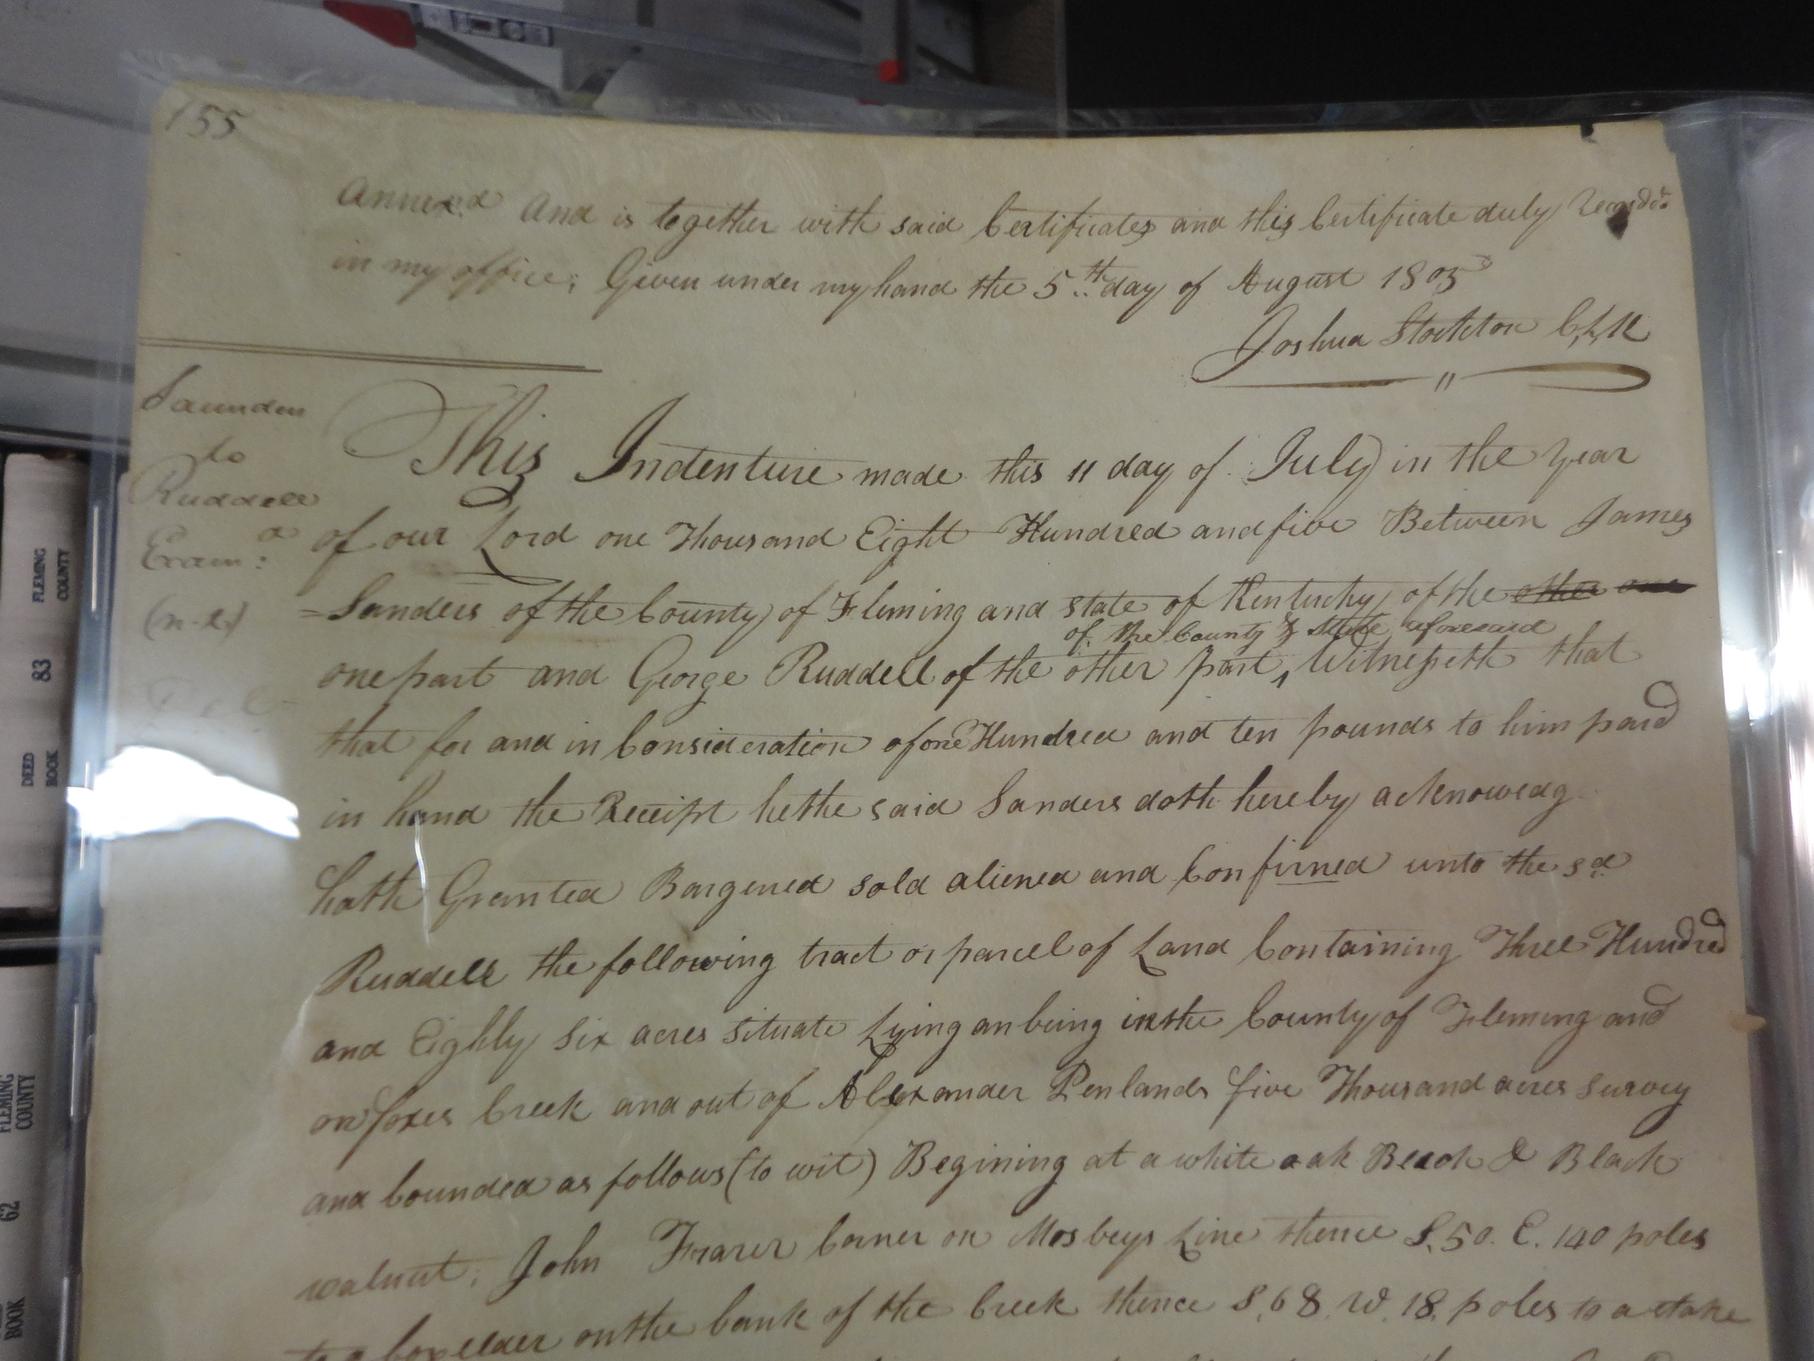 155
Annexd And is together with said Certificates and this Certificate duly Recordd.
in my office; Given under my hand the 5th day of August 1805
Joshua Stockton C,L,K
Saunders
to
Ruddell
Examd:
(n.e)
Del
This Indenture made this 11 day of July in the year
of our Lord one Thousand Eight Hundred and five Between James
=Sanders of the County of Fleming and state of Kentucky of the other one
of the County & State aforesaid
one part and George Ruddell of the other part, Witnesseth that
that for and in Consideration of one Hundred and ten pounds to him paid
in hand the Receipt he the said Sanders doth hereby acknowedg
hath Granted Bargened sold aliened and Confirmed unto the sd
Ruddell the following tract or parcel of Land Containing Three Hundred
and Eighty six acres situate Lying an being in the County of Fleming and
on foxes Creek and out of Alexander Penlands five Thousand acres survey
and bounded as follows (to wit) Begining at a white oak Beach & Black
walnut; John Frazer Corner on Mosbeys Line thence S. 50. E. 140 poles
to a box elder on the bank of the Creek thence S. 68. W. 18. poles to a stake
FLEMING COUNTY
83
DEED BOOK
FLEMING COUNTY
62
BOOK